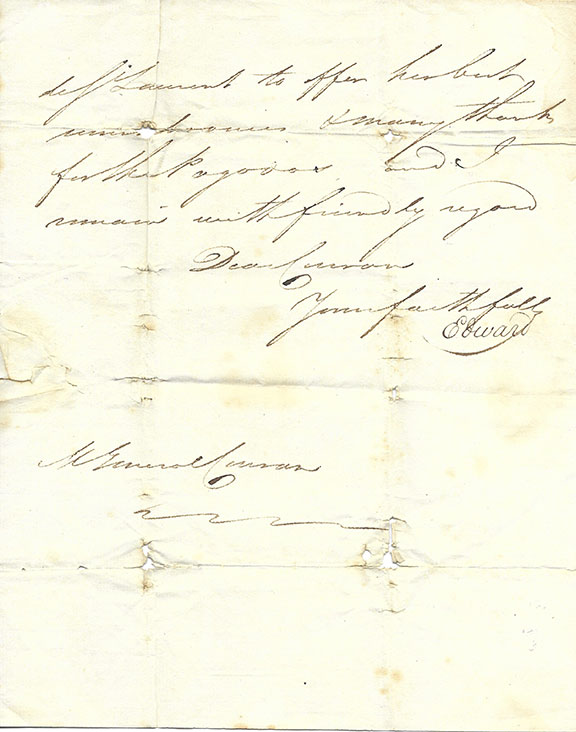 de St. Laurent to offer her best
& many thanks
for the Pagodas and I
remain with friendly regard
Dear Couran
Yours faithfully
Edward
M General Couran